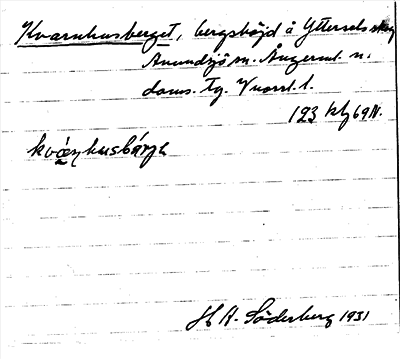 Kvarnhusberget, bergshöjd å Yttersels skog
Anundsjö sn. Ångerml. n.
doms. Tg. Vnorrl. l.
123 kbl 69 N.
H A. Söderberg 1931